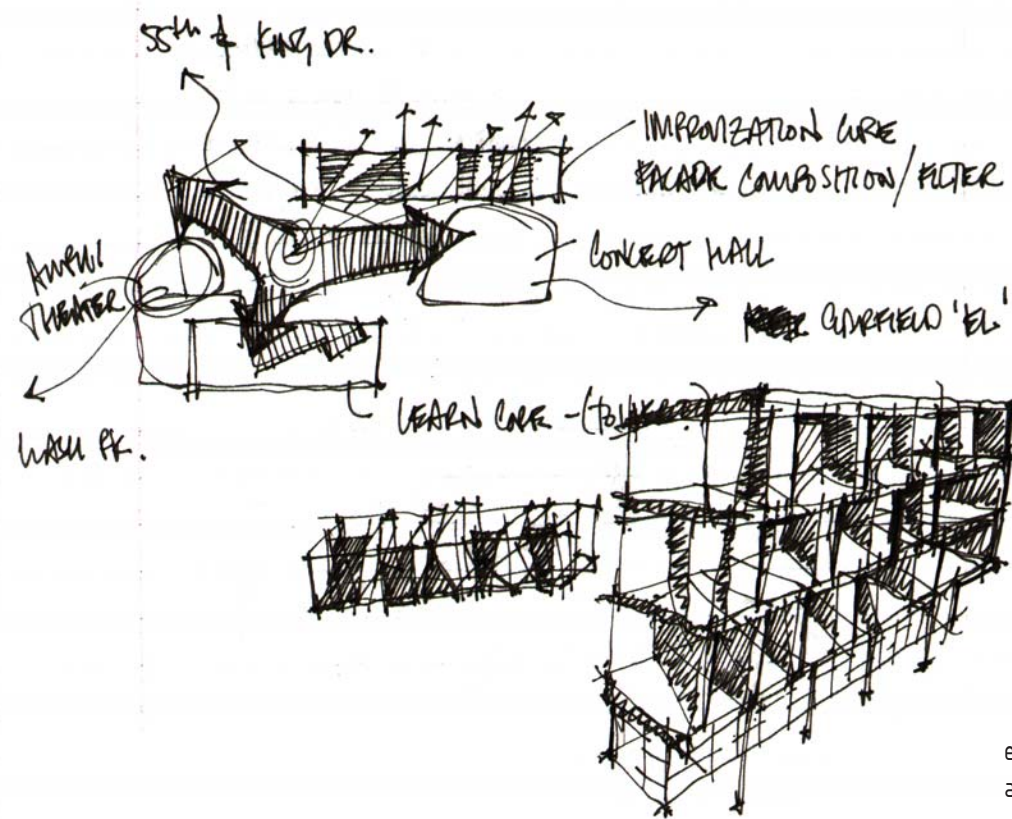 55th & KING DR.
IMPROVIZATION CORE
FACADE COMPOSITION/FILTER
CONCERT HALL
AMPHI
THEATER
GARFIELD 'EL'
LEARN CORE -
WASH PK.
e
a